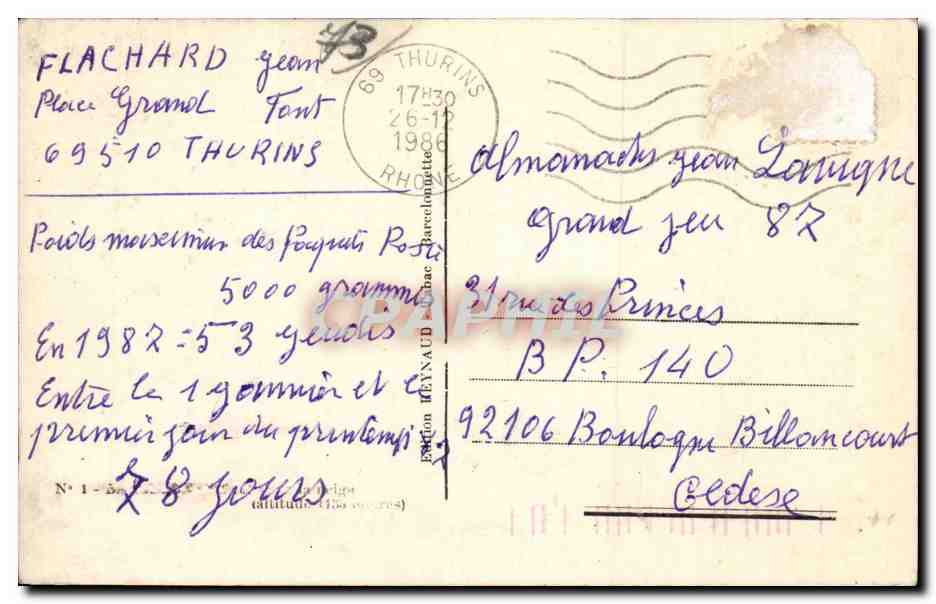 73
FLACHARD Jean
Place Grand Font
69510 THURINS
69 THURINS
17H30
26-12
1986
RHONE
Poids maximum des paquets Poste
5000 grammes
En 1987 = 53 jeudis
Entre le 1 janvier et le
premier jour du printemps 87
78 jours
N° 1 -
neige
(altitude 1135 mètres)
Edition REYNAUD bac Barcelonnette
Almanachs Jean Lavigne
Grand jeu 87
31 rue des Princes
B P. 140
92106 Boulogne Billancourt
Cedex
CPAPHIL